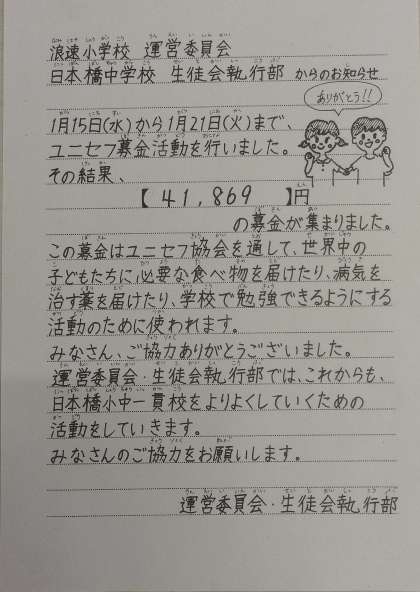 浪速小学校　運営委員会
日本橋中学校　生徒会執行部 からのお知らせ
ありがとう!!
1月15日(水)から1月21日(火)まで、
ユニセフ募金活動を行いました。
その結果、
【 41,869 】円
の募金が集まりました。
この募金はユニセフ協会を通して、世界中の
子どもたちに、必要な食べ物を届けたり、病気を
治す薬を届けたり、学校で勉強できるようにする
活動のために使われます。
みなさん、ご協力ありがとうございました。
運営委員会・生徒会執行部では、これからも、
日本橋小中一貫校をよりよくしていくための
活動をしていきます。
みなさんのご協力をお願いします。
運営委員会・生徒会執行部